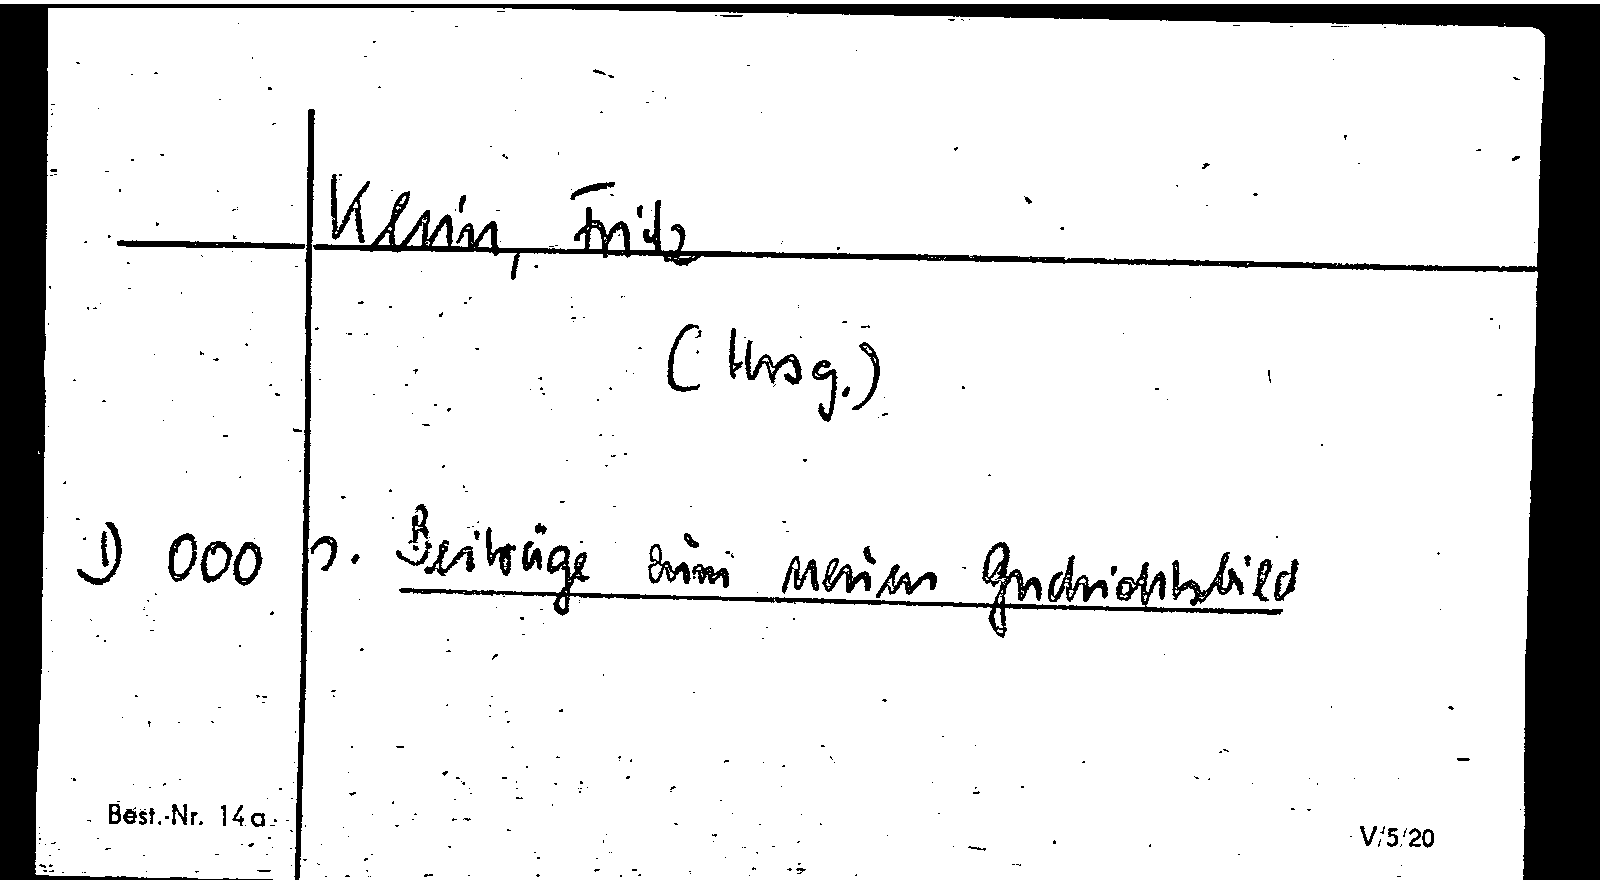 Klein, Fritz
(Hrsg.)
D 000 s. Beiträge zum neuen Geschichtsbild
Best.-Nr. 14a
V/5/20